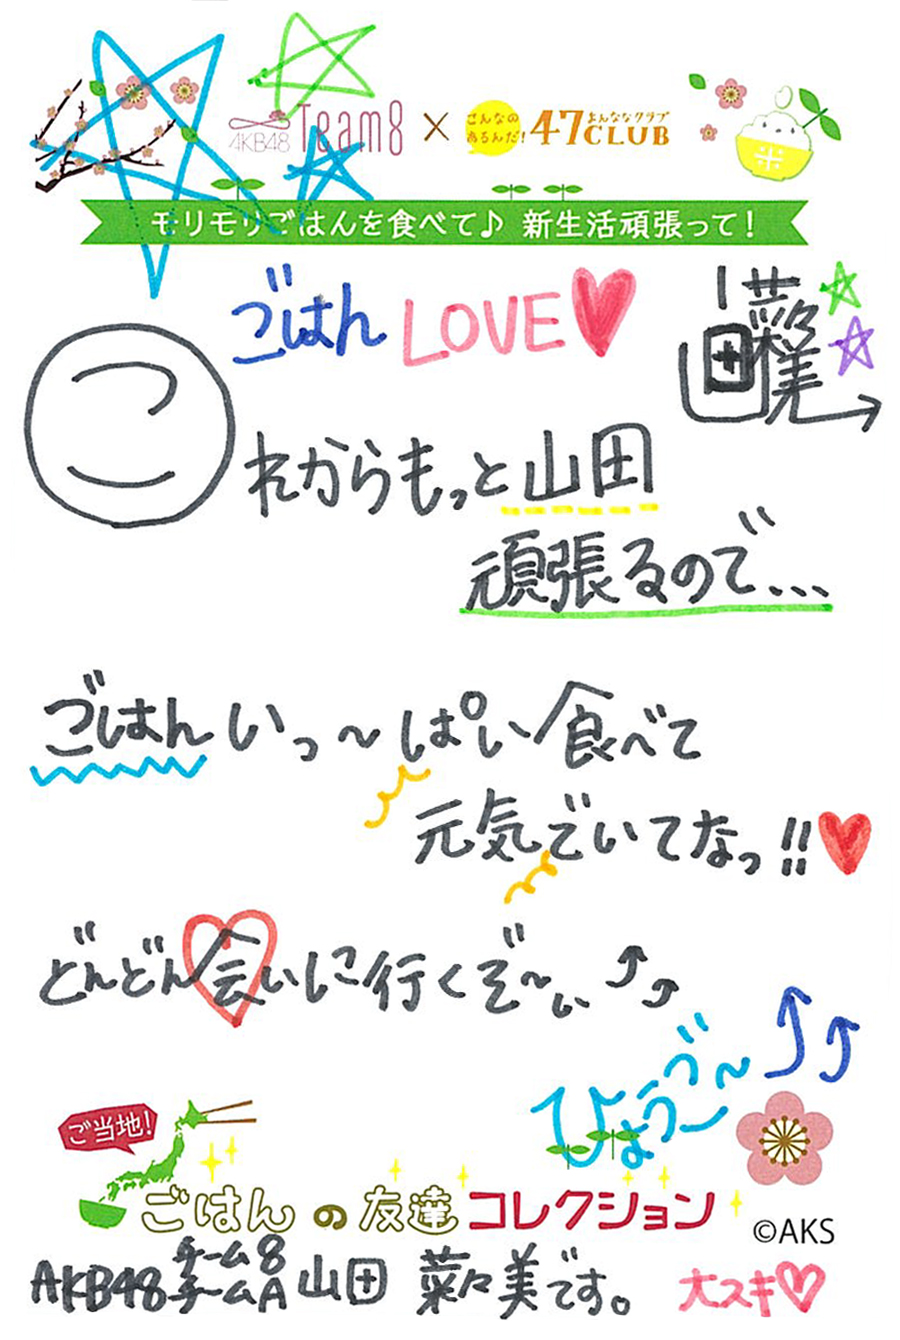 AKB48 Team8 × こんなのあるんだ! 47CLUB よんななクラブ
米
モリモリごはんを食べて♪ 新生活頑張って!
ごはん LOVE♥
山田菜々美
これからもっと山田
頑張るので...
ごはんいっ〜ぱい食べて
元気でいてなっ!!♥
どんどん会いに行くぞ〜ぃ⤴⤴
ひょうーゔ〜⤴⤴
ご当地!
ごはんの友達コレクション
©AKS
AKB48 チーム8 チームA 山田 菜々美です。 大スキ♡